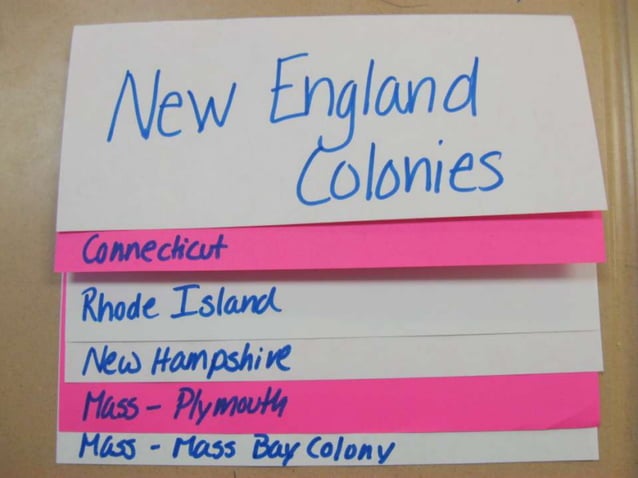 New England
Colonies
Connecticut
Rhode Island
New Hampshire
Mass - Plymouth
Mass - Mass Bay Colony